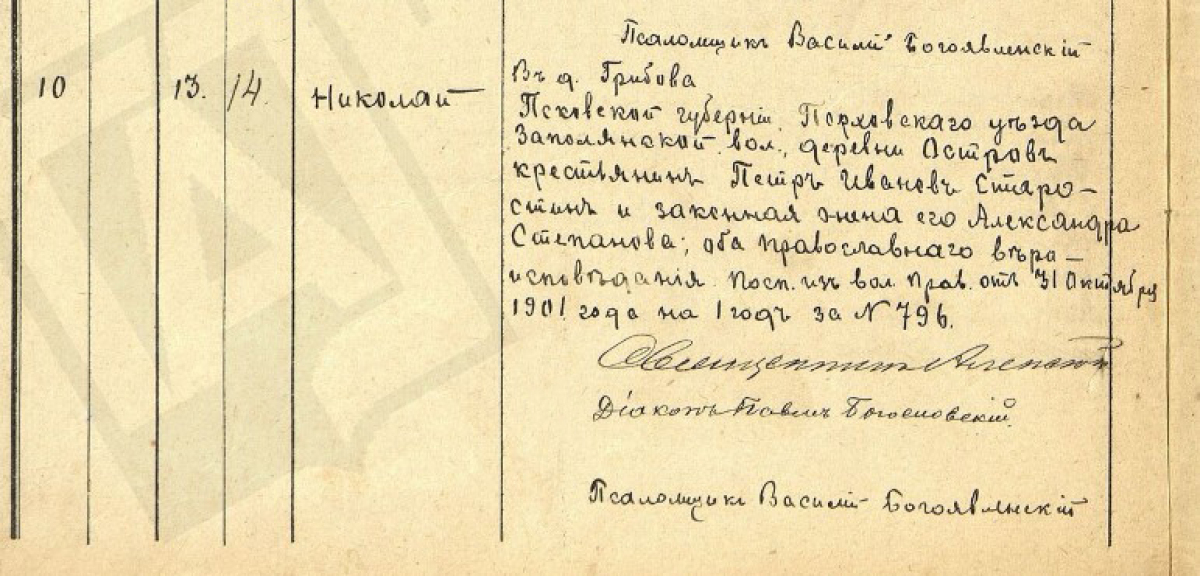 Псаломщикъ Василій Богоявленскій
10 13. 14. Николай
Въ д. Грибова
Псковской губерніи, Порховскаго уѣзда
Заполянской вол., деревни Островъ
крестьянинъ Петръ Ивановъ Старо-
стинъ и законная жена его Александра
Степанова; оба православнаго вѣро-
исповѣданія. Посп. изъ вол. прав. отъ 31 Октября
1901 года на 1 годъ за № 796.
Священникъ
Діаконъ Павелъ Богословскій
Псаломщикъ Василій Богоявленскій